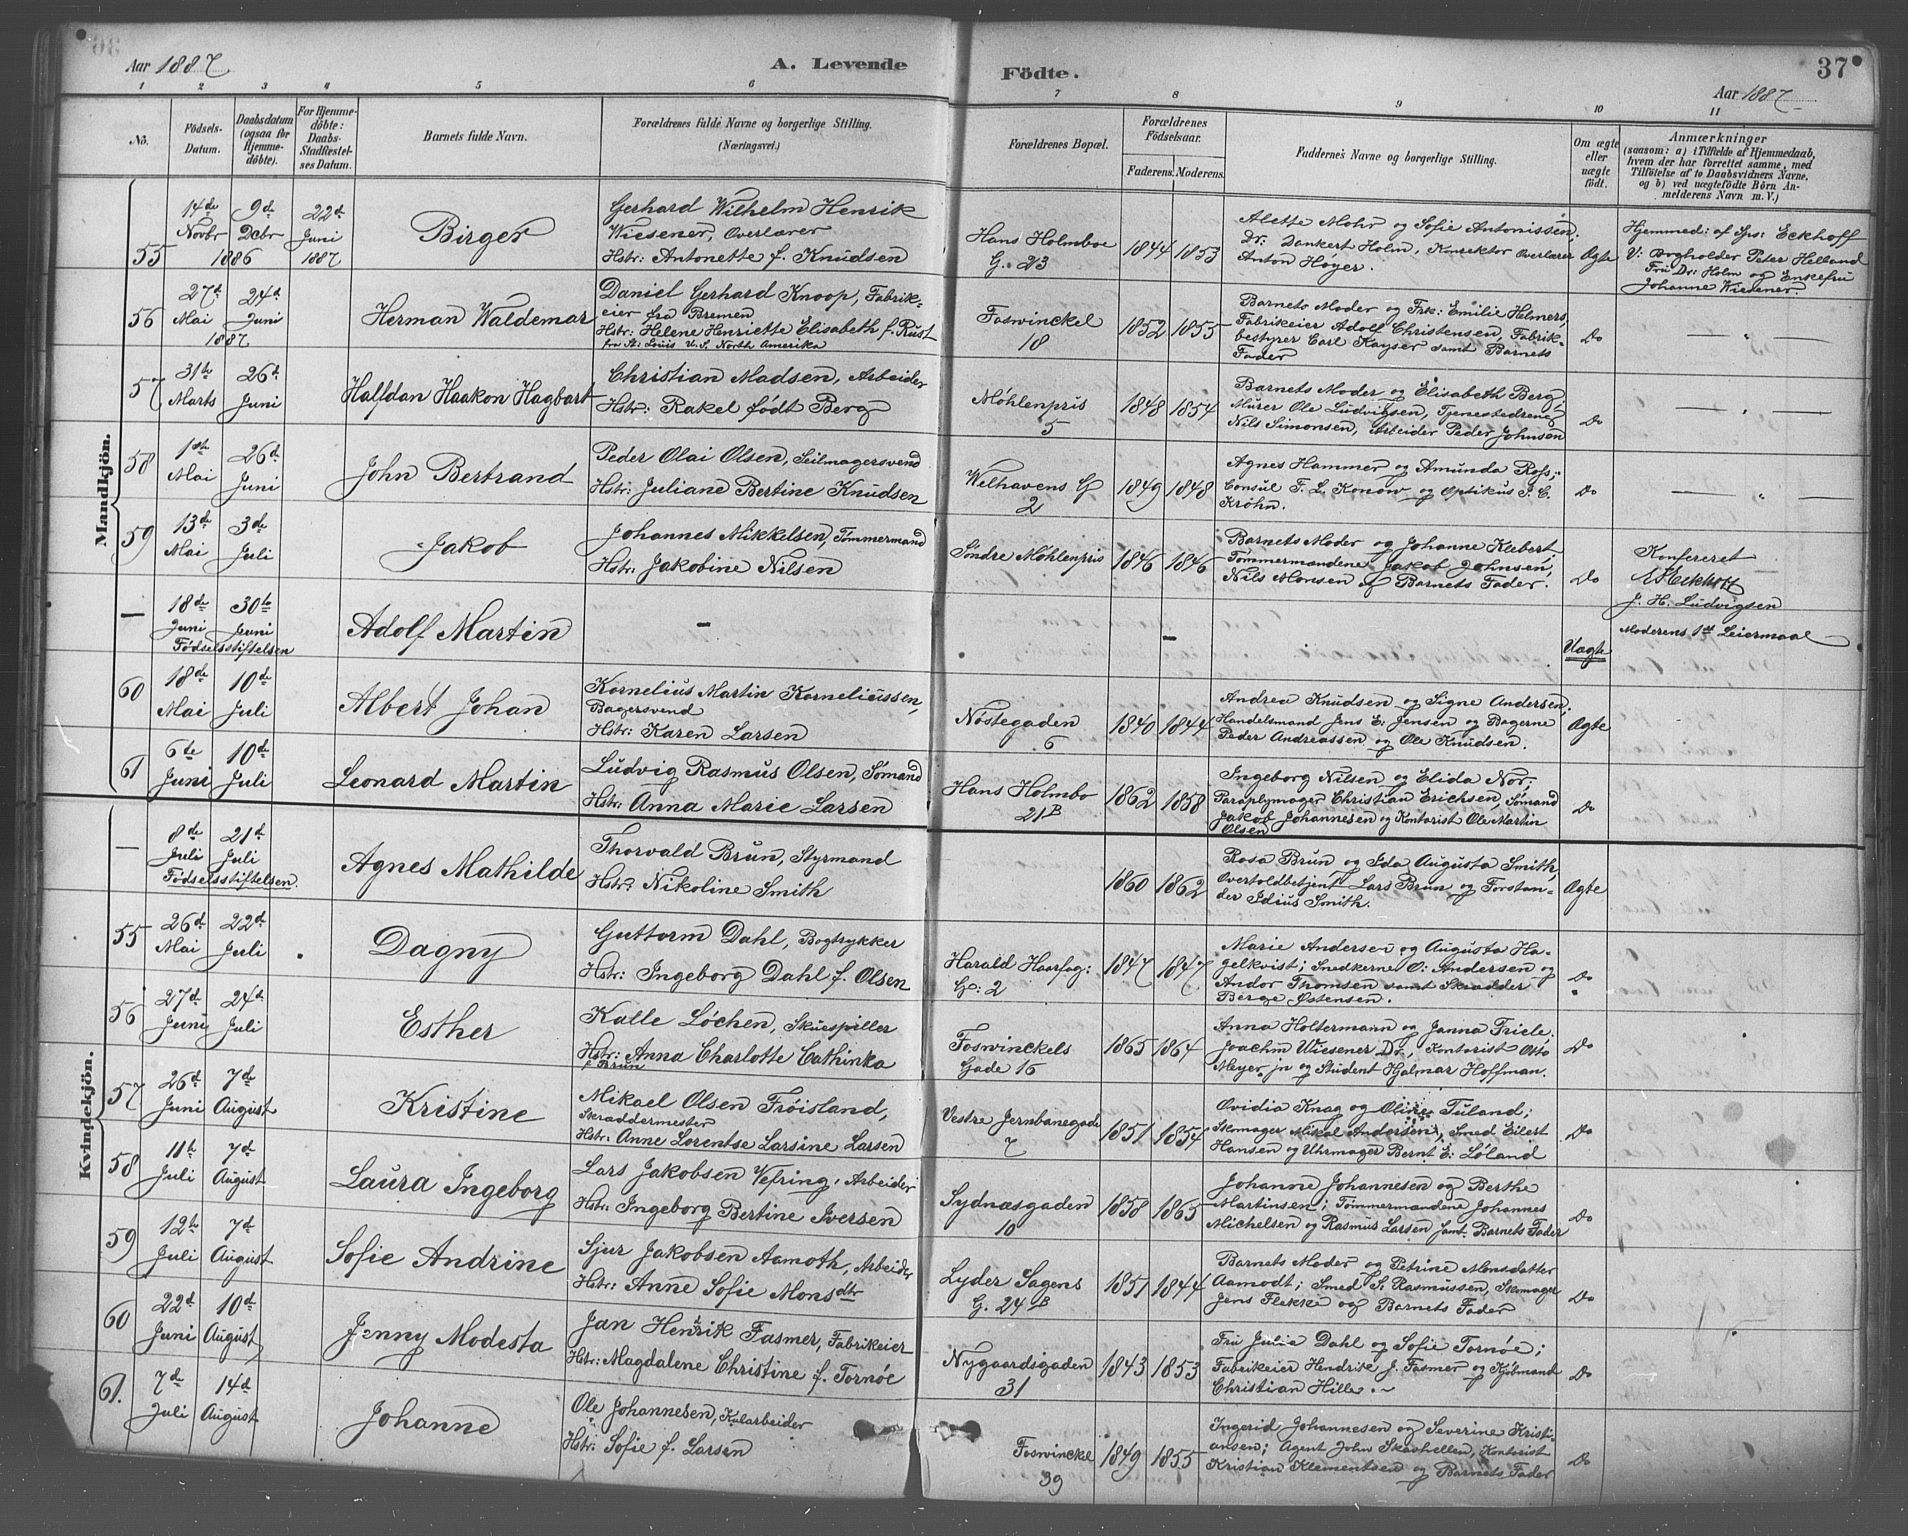 Aar 1887
A. Levende
Födte.
Aar 1887
37
1 2 3 4 5 6 7 8 9 10 11
No.
Födsels-Datum.
Daabsdatum (ogsaa for Hjemme-döbte).
For Hjemme-döbte: Daabs-Stadfestel-ses Datum.
Barnets fulde Navn.
Forældrenes fulde Navne og borgerlige Stilling.
(Næringsvei.)
Forældrenes Bopæl.
Forældrenes Födselsaar.
Faderens. Moderens.
Faddernes Navne og borgerlige Stilling.
Om ægte eller uægte födt.
Anmærkninger
(saasom: a) i Tilfælde af Hjemmedaab,
hvem der har forrettet samme, med
Tilföielse af to Daabsvidners Navne,
og b) ved uægtefödte Börn An-
melderens Navn m. V.)
Mandkjön.
55
14de Novbr 1886
9de Dcbr
22de Juni 1887
Birger
Gerhard Wilhelm Henrik
Wiesener, Overlærer
Hstr: Antonette f. Knudsen
Hans Holmboe
G. 23
1844 1853
Alette Mohr og Sofie Antonissen;
Dr: Dankert Holm, Konrektor Overlærer
Anton Høyer.
Ægte
Hjemmed: af Sps: Eckhoff
V: Bogholder Peter Helland
Fru Dr: Holm og Enkefru
Johanne Wiesener.
56
27de Mai 1887
24de Juni
Herman Waldemar
Daniel Gerhard Knoop, Fabrik-
eier fra Bremen
Hstr: Helene Henriette Elisabeth f. Rust
fra St: Louis U. S. North Amerika
Foswinckel
18
1852 1855
Barnets Moder og Frk: Emilie Holmers,
Fabrikeier Adolf Christensen, Fabrik-
bestyrer Carl Kayser samt Barnets
Fader
Do
— " —
57
31te Marts
26de Juni
Halfdan Haakon Hagbart
Christian Madsen, Arbeider
Hstr: Rakel født Berg
Møhlenpris
5
1848 1854
Barnets Moder og Elisabeth Berg
Murer Ole Ludvigsen, Tjenestedreng
Nils Simonsen, Arbeider Peder Johnsen
Do
— " —
58
1ste Mai
26de Juni
John Bertrand
Peder Olai Olsen, Seilmagersvend
Hstr: Juliane Bertine Knudsen
Welhavens G
2
1849 1848
Agnes Hammer og Amunda Rofs;
Consul F. L. Konow og Optikus J. C.
Krohn.
Do
— " —
59
13de Mai
3de Juli
Jakob
Johannes Mikkelsen, Tømmermand
Hstr: Jakobine Nilsen
Søndre Møhlenpris
1846 1846
Barnets Moder og Johanne Klebert
Tømmermandene Jakob Johnsen,
Nils Monsen og Barnets Fader.
Do
Konfereret
Eckhoff
J. H. Ludvigsen
—
18de Juni
30te Juni
Fødselsstiftelsen
Adolf Martin
—
—
Uægte
Moderens 1ste Leiermaal
60
18de Mai
10de Juli
Albert Johan
Kornelius Martin Korneliussen,
Bagersvend
Hstr: Karen Larsen
Nøstegaden
6
1840 1844
Andrea Knudsen og Signe Andersen;
Handelsmand Jens E: Jensen og Bagerne
Peder Andreassen og Ole Knudsen.
Ægte
61
6te Juni
10de Juli
Leonard Martin
Ludvig Rasmus Olsen, Sømand
Hstr: Anna Marie Larsen
Hans Holmbo
21B
1862 1858
Ingeborg Nilsen og Elida Nor;
Paraplymager Christian Erichsen, Sømand
Jakob Johannesen og Kontorist Ole Martin
Olsen
Do
Kvindekjön.
—
8de Juli
21de Juli
Fødselsstiftelsen.
Agnes Mathilde
Thorvald Brun, Styrmand
Hstr: Nikoline Smith
1860 1862
Rosa Brun og Ida Augusta Smith,
Overtoldbetjent Lars Brun og Forstan-
der Idius Smith.
Ægte
55
26de Mai
22de Juli
Dagny
Guttorm Dahl, Bogtrykker
Hstr: Ingeborg Dahl f. Olsen
Harald Haarfag:
G: 2
1847 1847
Marie Andersen og Augusta Ha-
gelkvist; Snedkerne O: Andersen og
Andor Thomsen samt Skrædder
Berge Østensen.
Do
56
27de Juni
24de Juli
Esther
Kalle Løchen, Skuespiller
Hstr: Anna Charlotte Cathinka
f. Krun
Foswinckels
Gade 16
1865 1864
Anna Holtermann og Janna Friele;
Joachim Wiesener Dr., Kontorist Otto
Meyer jn og Student Hjalmar Hoffman.
Do
57
26de Juni
7de August
Kristine
Mikael Olsen Frøisland,
Skræddermester
Hstr: Anne Lorentse Larsine Larsen
Vestre Jernbanegade
7
1851 1854
Ovidia Knag og Oline Tuland;
Skomager Mikal Andersen, Smed Eilert
Hansen og Uhrmager Bernt E: Løland
Do
58
11te Juli
7de August
Laura Ingeborg
Lars Jakobsen Vefring, Arbeider
Hstr: Ingeborg Bertine Iversen
Sydnæsgaden
10
1858 1865
Johanne Johannesen og Berthe
Martinsen; Tømmermandene Johannes
Michelsen og Rasmus Larsen samt Barnets Fader
Do
59
12te Juli
7de August
Sofie Andrine
Sjur Jakobsen Aamoth, Arbeider
Hstr: Anne Sofie Monsdtr
Lyder Sagens
G. 24B
1851 1844
Barnets Moder og Petrine Monsdatter
Aamodt; Smed S: Rasmussen, Skomager
Jens Flekke og Barnets Fader
Do
60
22de Juni
10de August
Jenny Modesta
Jan Henrik Fasmer, Fabrikeier
Hstr: Magdalene Christine f. Tornøe
Nygaardsgaden
31
1843 1853
Fru Julia Dahl og Sofie Tornøe;
Fabrikeier Hendrik J. Fasmer og Kjøbmand
Christian Hille.
Do
61.
7de Juli
14de August
Johanne
Ole Johannesen, Kularbeider
Hstr: Sofie f. Larsen
Foswinckel
39
1849 1855
Ingerid Johannesen og Severine Kristi-
ansen; Agent John Skavhellen, Kontorist
Kristian Klementsen og Barnets Fader
Do